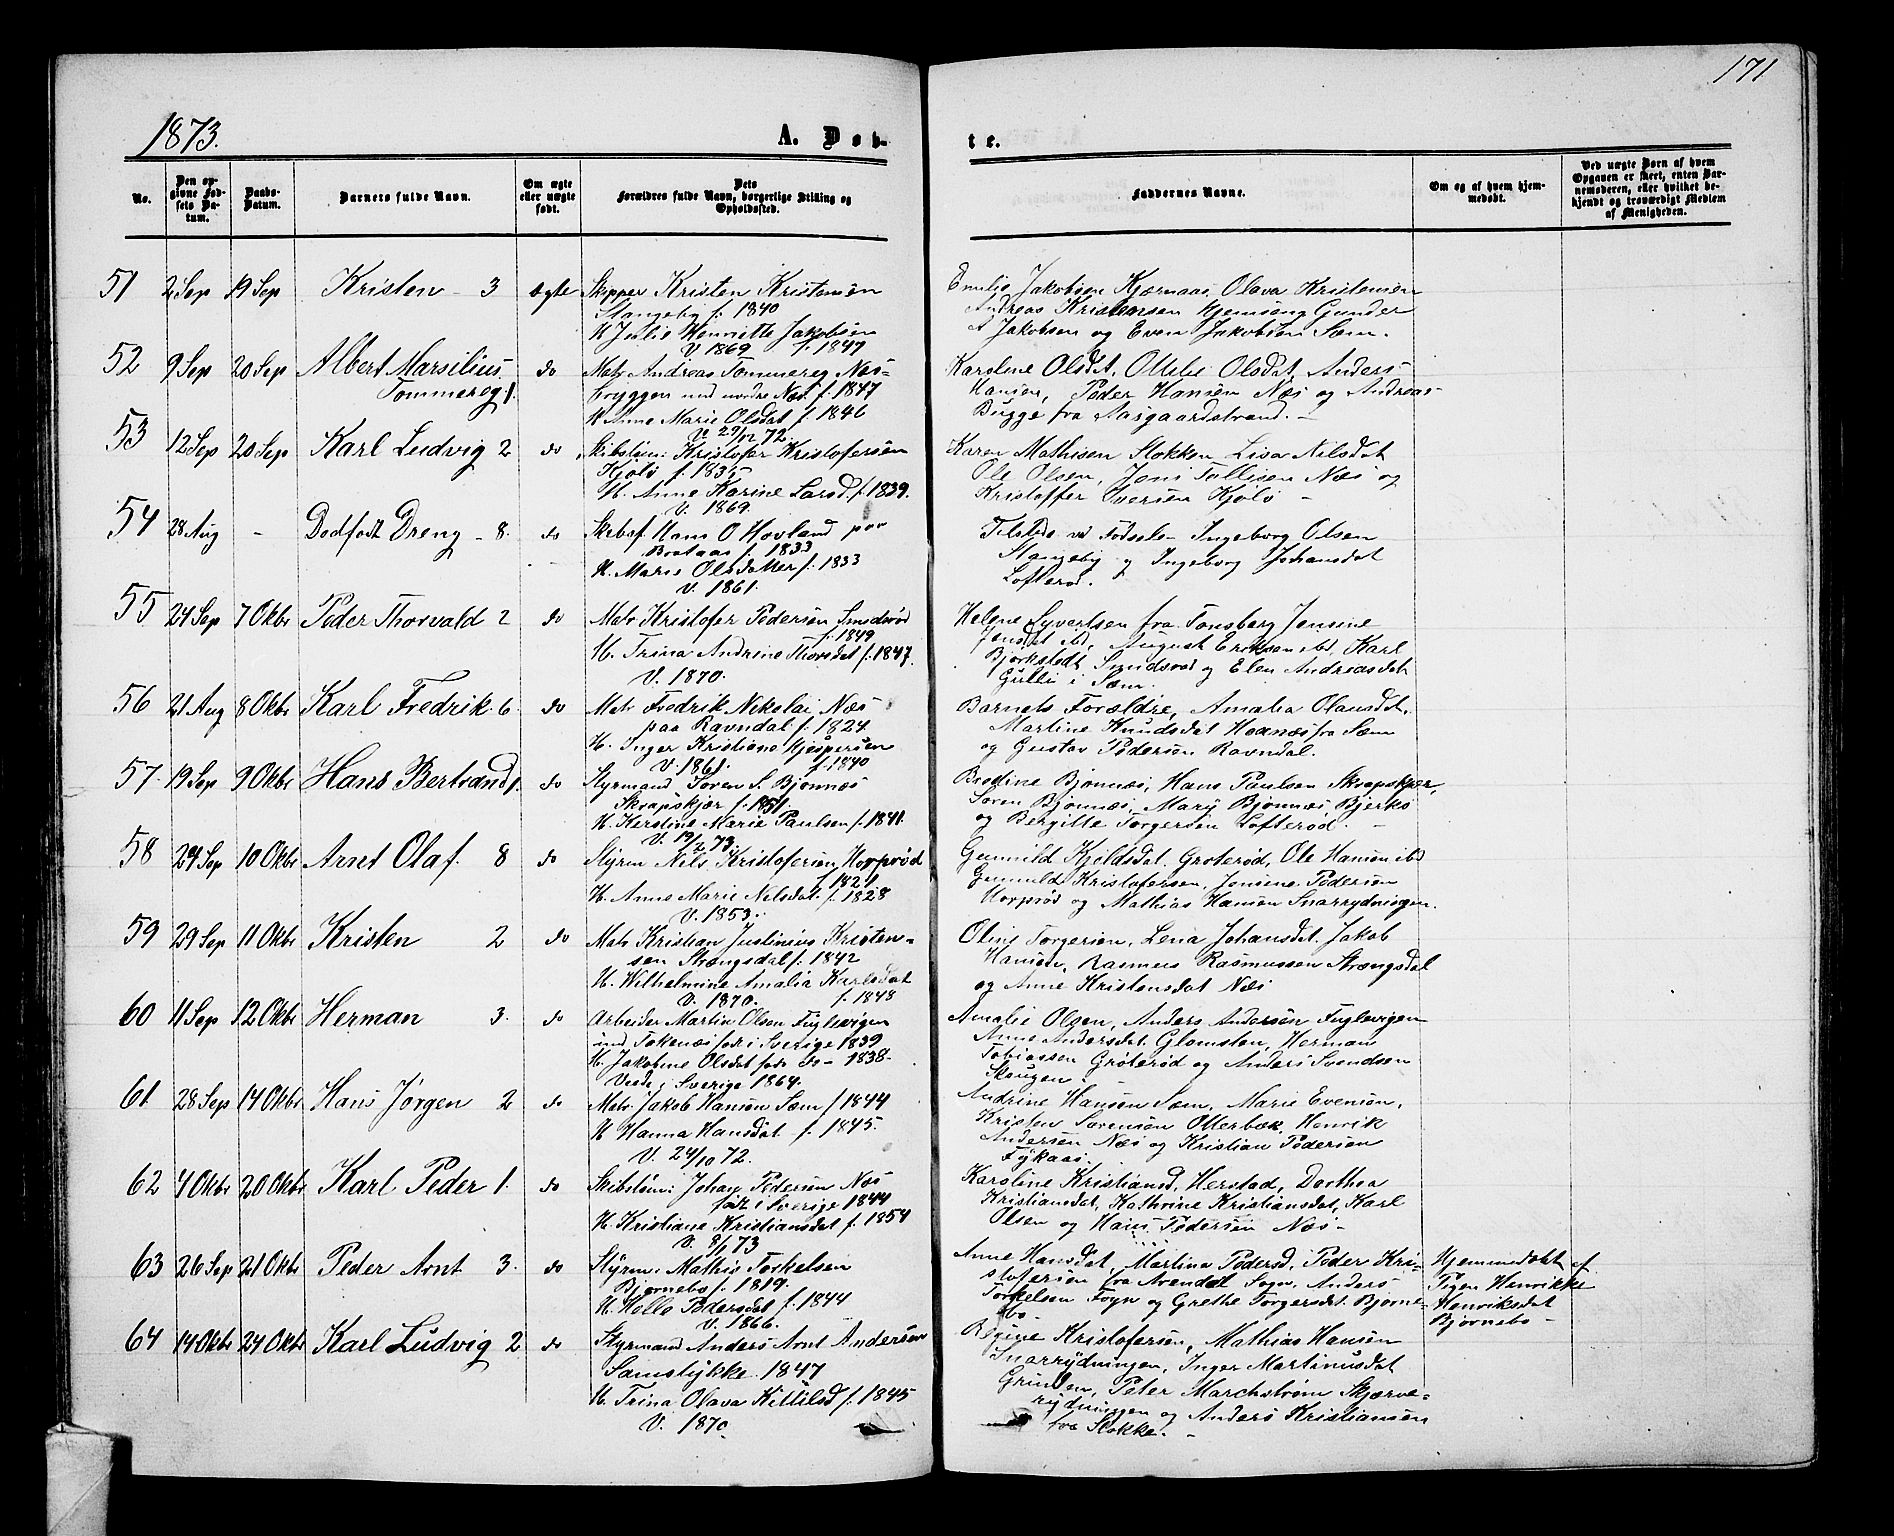 171
1873.
A. Døb-
te.
No.
Den opgivne Fødsels Datum.
Daabs-Datum.
Barnets fulde Navn.
Om ægte eller uægte født.
Dets Forældres fulde Navn, borgerlige Stilling og Opholdssted.
Faddernes Navne.
Om og af hvem hjemmedøbt.
Ved uægte Børn af hvem Opgaven er skeet, enten Barnemoderen, eller hvilket bekjendt og troværdigt Medlem af Menigheden.
51 2 Sep 19 Sep Kristen - 3 ægte Skipper Kristen Kristensen
Stangeby f. 1840
H Julie Henriette Jakobsen
V 1869 f. 1847
Emilie Jakobsen Kjærnaas, Olava Kristensen
Andreas Kristensen Hjemseng Gunder
A Jakobsen og Even Jakobsen Sæm.
52 9 Sep 20 Sep Albert Marsilius Tommereg 1. do Matr. Andreas Tommereg Næs-
bryggen und nordre Næs f. 1847
H Anne Marie Olsdat f. 1846
V. 29/12 72.
Karoline Olsdt, Ottilie Olsdat, Anders
Hansen, Peder Hansen Næs og Andreas
Bugge fra Aasgaardstrand. -
53 12 Sep 20 Sep Karl Ludvig 2 do Skibstøm: Kristofer Kristofersen
Kjølø f. 1835
H. Anne Karine Larsd f. 1839.
V. 1869.
Karen Mathisen Stokken, Lisa Nilsdat
Ole Olsen, Jens Tollisen Næs og
Kristoffer Iversen Kjølø -
54 28 Aug - Dødfødt Dreng - 8. do Skibsf Hans O Hovland paa
Brataas f. 1833
H. Maris Olsdatter f. 1833
V. 1861.
Tilstede ved Fødsele- Ingeborg Olsen
Stangeby og Ingeborg Johansdat
Lofterød.
55 24 Sep 7 Oktbr Peder Thorvald 2 do Matr Kristofer Pedersen Smidsrød
f. 1849
H. Trina Andrine Thorsdat f. 1847.
V. 1870.
Helene Syvertsen fra Tønsberg Jensine
Jensdt ibd, August Eriksen ibd, Karl
Bjørkstedt Smidsrød og Elen Andreasdat
Gulli i Sæm.
56 21 Aug 8 Oktbr Karl Fredrik 6. do Matr Fredrik Nikolai Næs
paa Ravndal f. 1824
H. Inger Kristiane Hjespersen
V. 1861. f. 1840
Barnets Forældre, Amalia Olausdat,
Martine Knudsdat Hoanæs fra Sæm
og Gustav Pedersen Ravndal.
57. 19 Sep 9 Oktbr Hans Bertrand 1. do Styrmand Søren S. Bjønnes
Skrapskjær f. 1851
H. Kerstine Marie Paulsen f. 1841.
V. 19/2 73.
Bredine Bjønnes, Hans Paulsen Skrapskjær,
Søren Bjønnes, Mary Bjønnes Bjerkø
og Bergitte Torgersen Lofterød. -
58 24 Sep 10 Oktbr Arnt Olaf. 8 do Styrm Nils Kristofersen Horprød
f. 1821
H. Anne Marie Nilsdat. f. 1828
V. 1853.
Gunnild Kjeldsdat. Groterød, Ole Hansen ibd
Gunnild Kristofersen, Jonsine Pedersen
Horprød og Mathias Hansen Snarrydningen.
59 29 Sep 11 Oktbr Kristen 2 do Matr Kristian Justinius Kristen-
sen Strængsdal f. 1842
H. Wilhelmine Amalia Karlsdat
V. 1870. f. 1848
Oline Torgersen, Lena Johansdat. Jakob
Hansen, Rasmus Rasmussen Strængsdal
og Anne Kristensdat Næs
60 11 Sep 12 Oktbr Herman 3. do Arbeider Martin Olsen Fuglevigen
und Jakenæs født i Sverige 1839
H. Jakobine Olsdat føds do - 1838-
Viede i Sverige 1864.
Amalie Olsen, Anders Andersen Fuglevigen
Anne Andersdat. Glomsten, Herman
Tobiassen Grøterød og Anders Svendsen
Skougen.
61. 28 Sep 14 Oktbr Hans Jørgen 2 do Matr. Jakob Hansen Sæm f 1844
H Hanna Hansdat f. 1845.
V. 24/10 72.
Andrine Hansen Sæm, Marie Evensen,
Kristen Sørensen Otterbæk, Henrik
Andersen Næs og Kristian Pedersen
Fykaas.
62 4 Oktbr 20 Oktbr Karl Peder 1. do Skibstøm: Johan Pedersen Næs
født i Sverige 1844
H. Kristiane Kristiansdat f. 1854
V. 8/1 73
Karoline Kristiansd, Herstad, Dorthea
Kristiansdat, Kathrine Kristiansdat, Karl
Olsen og Hans Pedersen Næs -
63 26 Sep 21 Oktbr Peder Arnt 3. do Styrm: Mathis Torkelsen
Bjørnebo f. 1819.
H. Helle Pedersdat f. 1844
V. 1866.
Anne Hansdat, Martina Pedersd, Peder Kri-
stofersen fra Arendal Sogn, Anders
Torkelsen Foyn og Grethe Torgersdat. Bjørne-
bo -
Hjemmedøbt af
Pigen Henrikke
Henriksdat
Bjørnebo -
64 14 Oktbr 24 Oktbr Karl Ludvig 2 do Styrmand Anders Arnt Andersen
Sæmstykke 1847
H. Trina Olava Kittilsd f. 1845
V. 1870
Regine Kristofersen, Mathias Hansen
Snarrydningen, Inger Martinusdat
Grinden, Peter Marchstrøm Skjærve-
rydningen og Anders Kristiansen
fra Stokke. -